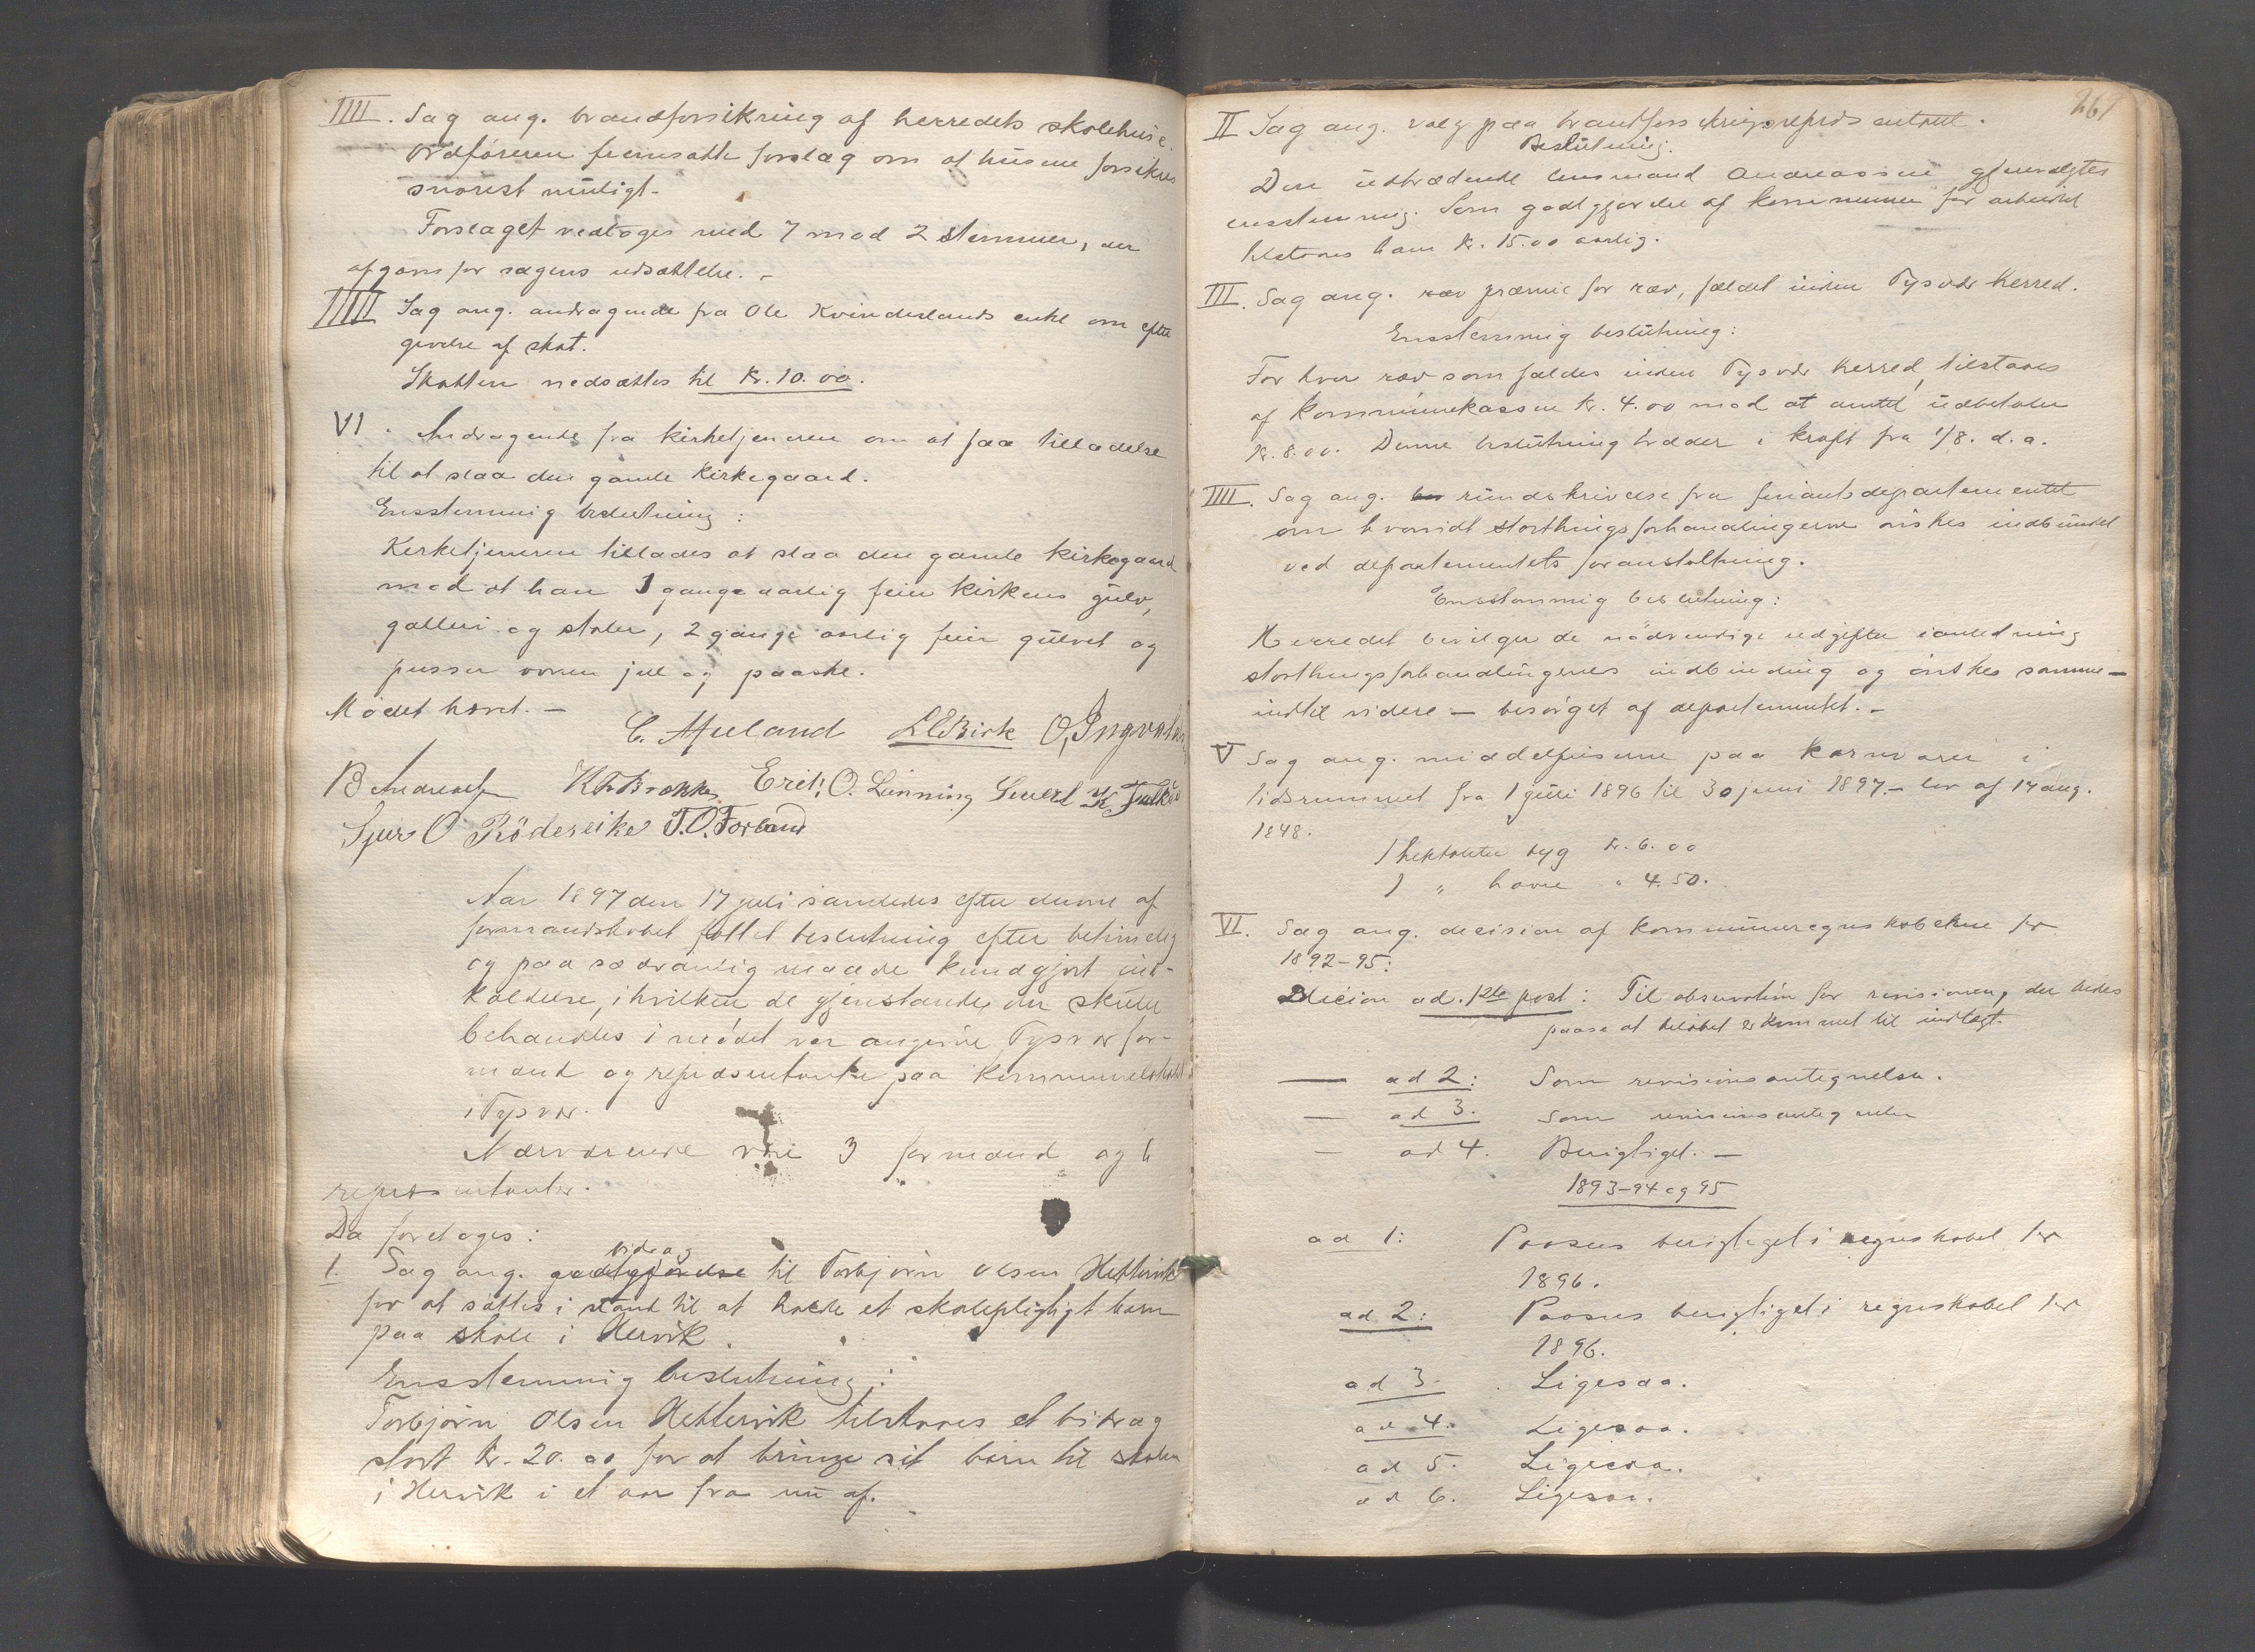 IIII. Sag ang. brandforsikring af herredets skolehuse.
Ordføreren fremsatte forslag om at husene forsikres
snarest muligt.
Forslaget vedtoges med 7 mod 2 stemmer, der
afgaves for sagens udsættelse. -
IIIII Sag ang. andragende fra Ole Kvindeslands enke om efter
givelse af skat.
Skatten nedsættes til Kr. 10.00.
VI. Andragende fra kirketjeneren om at faa tilladelse
til at slaa den gamle Kirkegaard.
Ensstemmig beslutning:
Kirketjeneren tillades at slaa den gamle Kirkegaard
mod at han 1 gange aarlig feier Kirkens gulv,
galleri og stoler, 2 gange aarlig feier gulvet og
pusser ovnen jul og paaske.
Mødet hævet. -
C. Apeland L E Birk O. Ingvaldsen
B Andreassen K. T. Brække Erik O. Linning Sivert K Falkeid
Sjur O Rødereike T. O. Førland
Aar 1897 den 17 juli samledes efter dennе af
formandskabet fattet beslutning efter betimelig
og paa sædvanlig maade kundgjort ind-
kaldelse, i hvilken de gjenstande, der skulde
behandles i mødet var angivne, Tysvær for-
mænd og repræsentanter paa Kommunelokalet
i Tysvær.
Nærværende vare 3 formænd og 6
repræsentanter.
Da foretoges:
bidrag
1. Sag ang. godtgjørelse til Torbjørn Olsen Hettervik
for at sættes i stand til at holde et skolepligtigt barn
paa skole i Hervik.
Ensstemmig beslutning:
Torbjørn Olsen Hettervik tilstaaes et bidrag
stort Kr. 20.00 for at bringe sit barn til skolen
i Hervik i et aar fra nu af.
267
II Sag ang. valg paa brandforsikringsrepræsentant.
Beslutning.
Den udtrædende lensmand Andreassen gjenvalgtes
ensstemmig. Som godtgjørelse af kommunen for arbeidet
tilstaaes ham Kr. 15.00 aarlig.
III. Sag ang. ræv præmie for ræv, fældet inden Tysvær Herred.
Ensstemmig beslutning:
For hver ræv som fældes inden Tysvær Herred, tilstaaes
af Kommunekassen Kr. 4.00 mod at amtet udbetaler
Kr. 8.00. Denne beslutning træder i kraft fra 1/8. d.a.
IIII. Sag ang. rundskrivelse fra finantsdepartementet
om hvorvidt storthingsforhandlingerne ønskes indbundet
ved departementets foranstaltning.
Ensstemmig beslutning:
Herredet bevilger de nødvendige udgifter ianledning
storthingsforhandlingernes indbinding og ønskes samme -
indtil videre - besørget af departementet. -
V Sag ang. middelpriserne paa Kornvarer i
tidsrummet fra 1 juli 1896 til 30 juni 1897. - lov af 17 aug.
1848.
1 hektoliter byg Kr. 6.00
1 " havre " 4.50.
VI. Sag ang. decision af Kommuneregnskaberne for
1892-95:
Decision ad. 1ste post: Til observation for revisionen, der bedes
paase at beløbet er kommet til indtægt.
— ad 2: Som revisionsantegnelsen.
— ad 3. Som revisionsantegnelsen
- ad 4. Berigtiget. -
1893-94 og 95
ad 1: Paasees berigtiget i regnskabet for
1896.
ad 2: Paasees berigtiget i regnskabet for
1896.
ad 3. Ligesaa.
ad 4. Ligesaa.
ad 5. Ligesaa.
ad 6. Ligesaa.